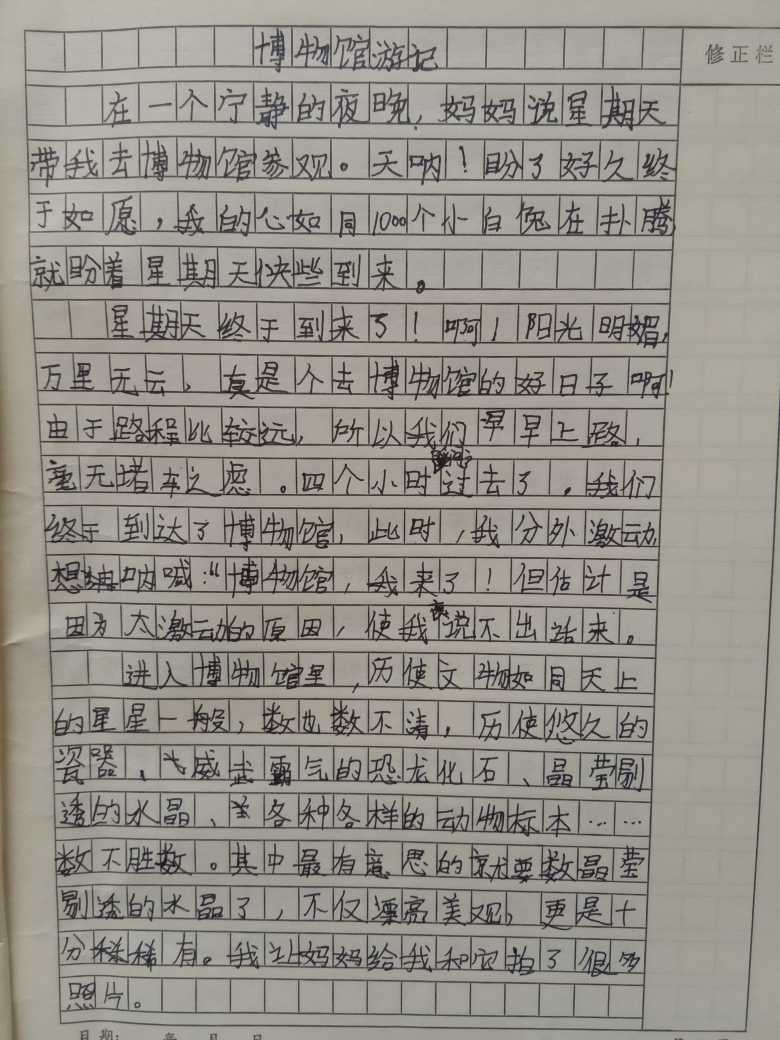 博物馆游记
修正栏
在一个宁静的夜晚，妈妈说星期天
带我去博物馆参观。天呐！盼了好久终
于如愿，我的心如同1000个小白兔在扑腾
就盼着星期天快些到来。
星期天终于到来了！啊！阳光明媚，
万里无云，真是个去博物馆的好日子啊！
由于路程比较远，所以我们早早上路，
毫无堵车之虑。四个小时过去了，我们
终于到达了博物馆，此时，我分外激动
想呐喊：“博物馆，我来了！但估计是
因为太激动的原因，使我说不出话来。
进入博物馆里，历使文物如同天上
的星星一般，数也数不清，历使悠久的
瓷器、威武霸气的恐龙化石、晶莹剔
透的水晶、各种各样的动物标本……
数不胜数。其中最有意思的就要数晶莹
剔透的水晶了，不仅漂亮美观，更是十
分稀有。我让妈妈给我和它拍了很多
照片。
日期： 年 月 日